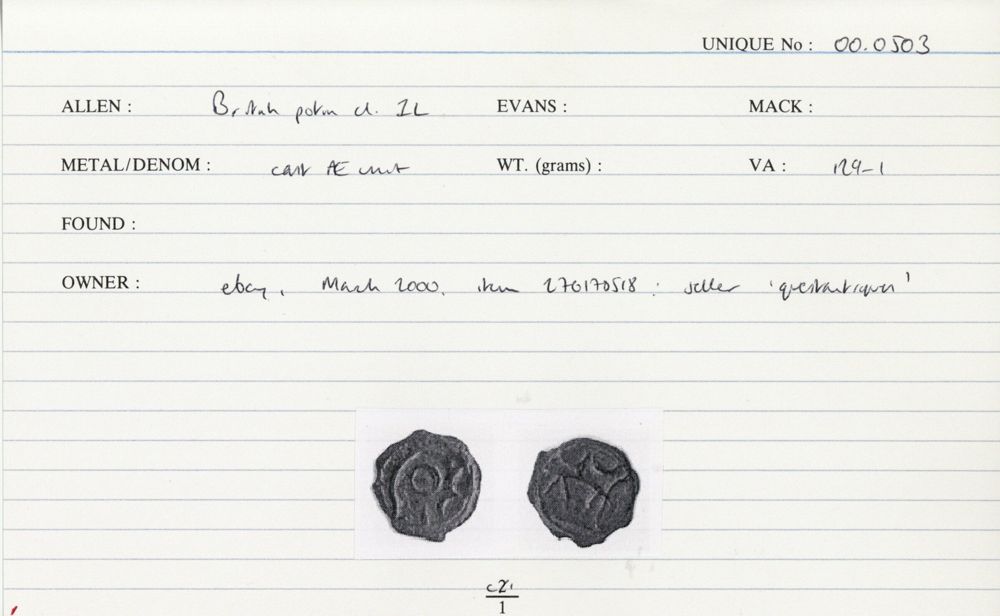 UNIQUE No : 00.0503
ALLEN : British potin cl. IL EVANS : MACK :
METAL/DENOM : cast Æ unit WT. (grams) : VA : 129-1
FOUND :
OWNER : ebay, March 2000, item 270170518 : seller 'questantiques'
c2:
1